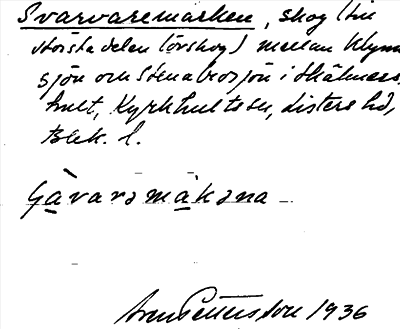 Svarvaremarken, skog (till
största delen lövskog) mellan Klynn
sjön och Stenabrosjön i Hkälmers
hult, Kyrkhults sn, Listers hd,
Blek. l.
Gàvarəmàkəna
Sven Pettersson 1936